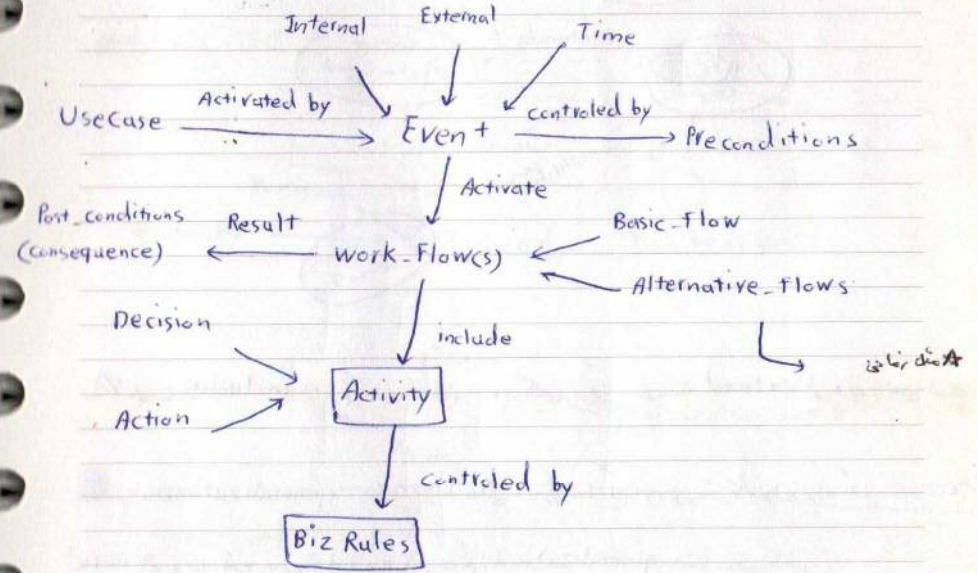 Internal
External
Time
Usecase
Activated by
Event
controled by
Preconditions
Activate
Post_conditions
(consequence)
Result
work_Flow(s)
Basic_Flow
Alternative_flows
Decision
include
Action
Activity
controled by
Biz Rules